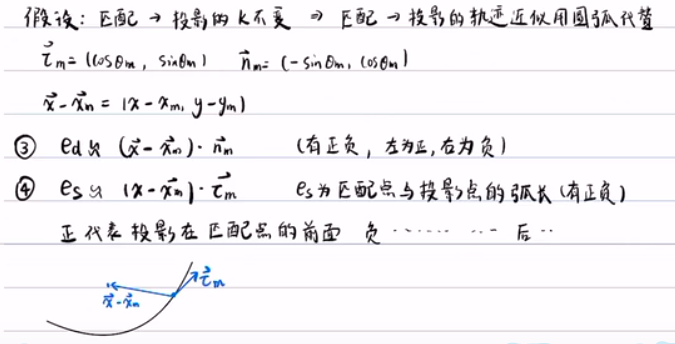 假设：匹配 → 投影的 k 不变 ⇒ 匹配 → 投影的轨迹近似用圆弧代替
τ⃗m = (cosθm, sinθm)  n⃗m = (-sinθm, cosθm)
x⃗ - x⃗m = (x - xm, y - ym)
③ ed ≈ (x⃗ - x⃗m)·n⃗m （有正负，左为正，右为负）
④ es ≈ (x - x⃗m)·τ⃗m  es 为匹配点与投影点的弧长（有正负）
正代表投影在匹配点的前面 负 …… … 后 ‥
τ⃗m
x⃗-x⃗m